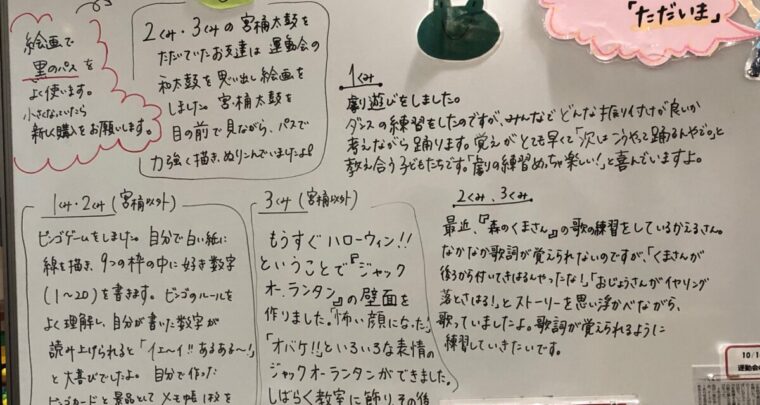 絵画で
黒のパスを
よく使います。
小さくなっていたら
新しく購入をお願いします。
2くみ・3くみの宮桶太鼓を
たたいていたお友達は運動会の
和太鼓を思い出し絵画を
しました。宮・桶太鼓を
目の前で見ながら、パスで
力強く描き、ぬりこんでいましたよ♪
「ただいま」
1くみ
劇遊びをしました。
ダンスの練習をしたのですが、みんなでどんな振り付けが良いか
考えながら踊ります。覚えがとても早くて「次はこうやって踊るんやで。」と
教え合う子どもたちです。「劇の練習めっちゃ楽しい!」と喜んでいますよ。
1くみ・2くみ(宮桶以外)
ビンゴゲームをしました。自分で白い紙に
線を描き、9つの枠の中に好き数字
(1~20)を書きます。ビンゴのルールを
よく理解し、自分が書いた数字が
読み上げられると「イェーイ!!あるある~!」
と大喜びでしたよ。自分で作った
ビンゴカードと景品としてメモ帳1枚を
3くみ(宮桶以外)
もうすぐハローウィン!!
ということで『ジャック
オ・ランタン』の壁面を
作りました。「怖い顔になった」
「オバケ!!」といろいろな表情の
ジャックオーランタンができました。
しばらく教室に飾り、その後
2くみ、3くみ
最近、『森のくまさん』の歌の練習をしているかえるさん。
なかなか歌詞が覚えられないのですが、「くまさんが
後ろから付いてきはるんやったな!」「おじょうさんがイヤリング
落とさはる!」とストーリーを思い浮かべながら、
歌っていましたよ。歌詞が覚えられるように
練習していきたいです。
10/1
運動会の